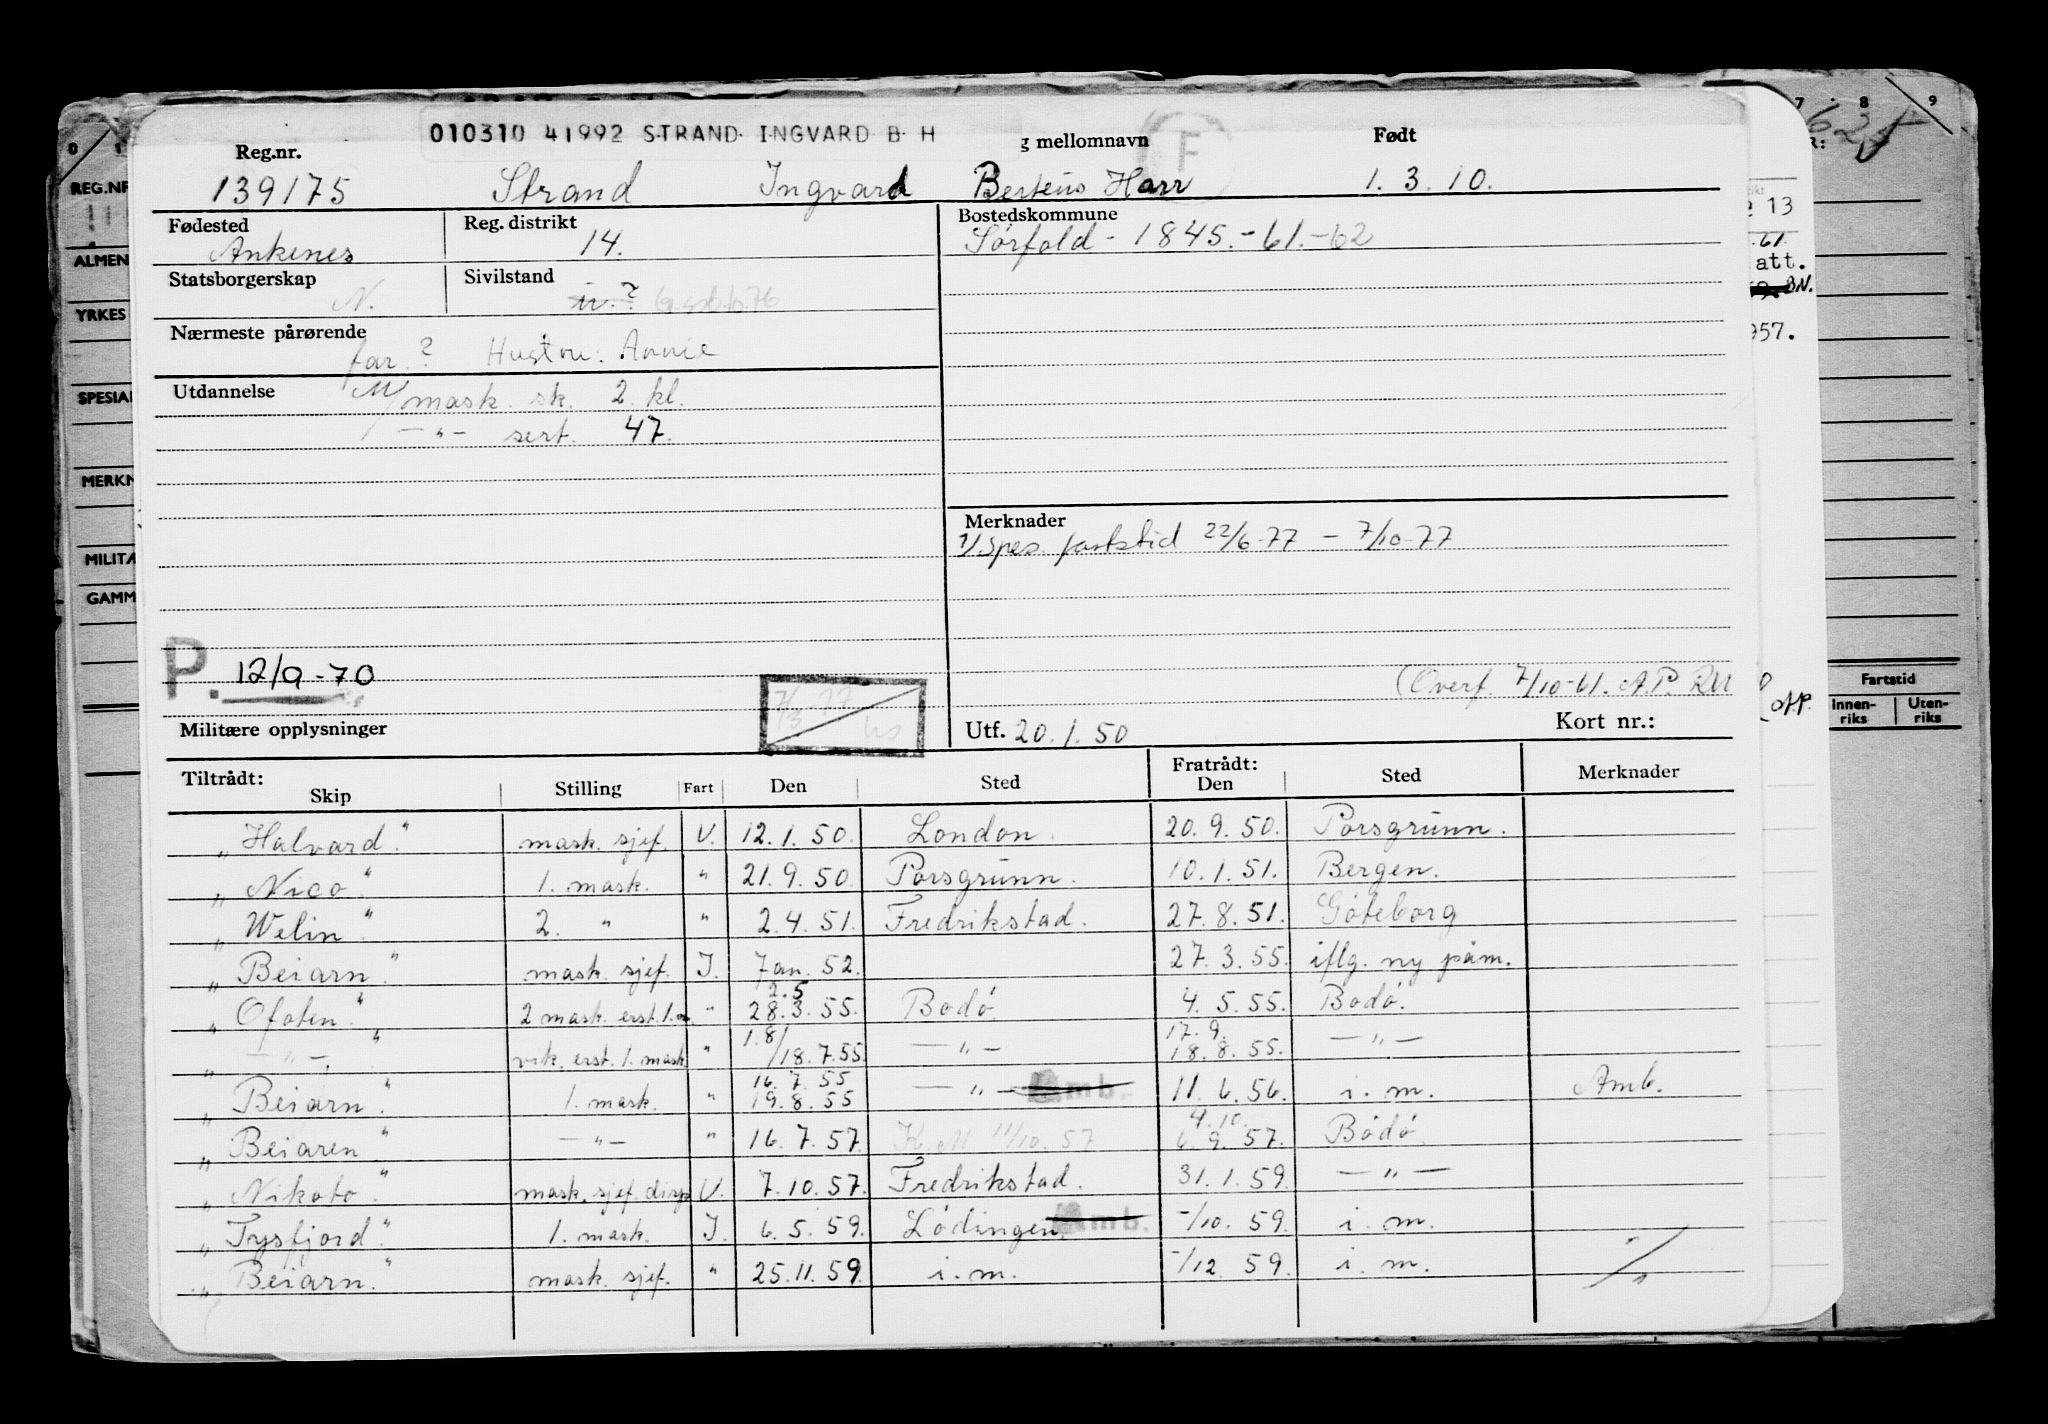 010310 41992 STRAND INGVARD B H
Reg.nr. g mellomnavn Født
139175 Strand Ingvard Berteus Harr 1. 3. 10.
Fødested Ankenes
Reg. distrikt 14.
Statsborgerskap N.
Sivilstand ?
Nærmeste pårørende far ? Hustru: Annie
Utdannelse M/mask. sk. 2. kl.
— " — sert. 47.
P. 12/9-70
Militære opplysninger
7/3-77
Bostedskommune
Sørfold - 1845. - 61. - 62
Merknader
1/ Spes. fartstid 22/6-77 – 7/10-77
(Overf. 7/10-61. A.P.
Utf. 20.1.50 Kort nr.:
Tiltrådt: Skip Stilling Fart Den Sted Fratrådt: Den Sted Merknader
„Halvard" mask. sjef. V. 12.1.50. London. 20.9.50. Porsgrunn.
„Nico" 1. mask. " 21.9.50. Porsgrunn. 10.1.51. Bergen.
„Welin" 2. " " 2.4.51. Fredrikstad. 27.8.51. Göteborg
„Beiarn" mask. sjef. I. Jan. 52. 27.3.55. iflg. ny påm.
„Ofoten" 2 mask. erst. 1. m. " 2.5 28.3.55. Bodø 4.5.55. Bodø.
„ — " — " vik. erst. 1. mask. " 1.8/ /18.7.55. — " — 17.9. 18.8.55. — " —
„Beiarn" 1. mask. " 16.7.55 19.8.55 — " — Amb. 11.6.56. i. m. Amb.
„Beiaren" — " — " 16.7.57. K. M 11/10.57. 4.10. 6.9.57. Bodø.
„Nikoto" mask. sjef. disp. V. 7.10.57. Fredrikstad. 31.1.59. — " —
„Tysfjord" 1. mask. I. 6.5.59. Lødingen Amb. -/10.59. i. m.
„Beiarn" mask. sjef. " 25.11.59. i. m. -/12.59. i. m.
0
REG.NR
ALMEN
YRKES
SPESIAL
MERKN
MILITÆ
GAMM
7 8 9
13
61.
att.
BN.
957.
Fartstid
Innen-riks Uten-riks